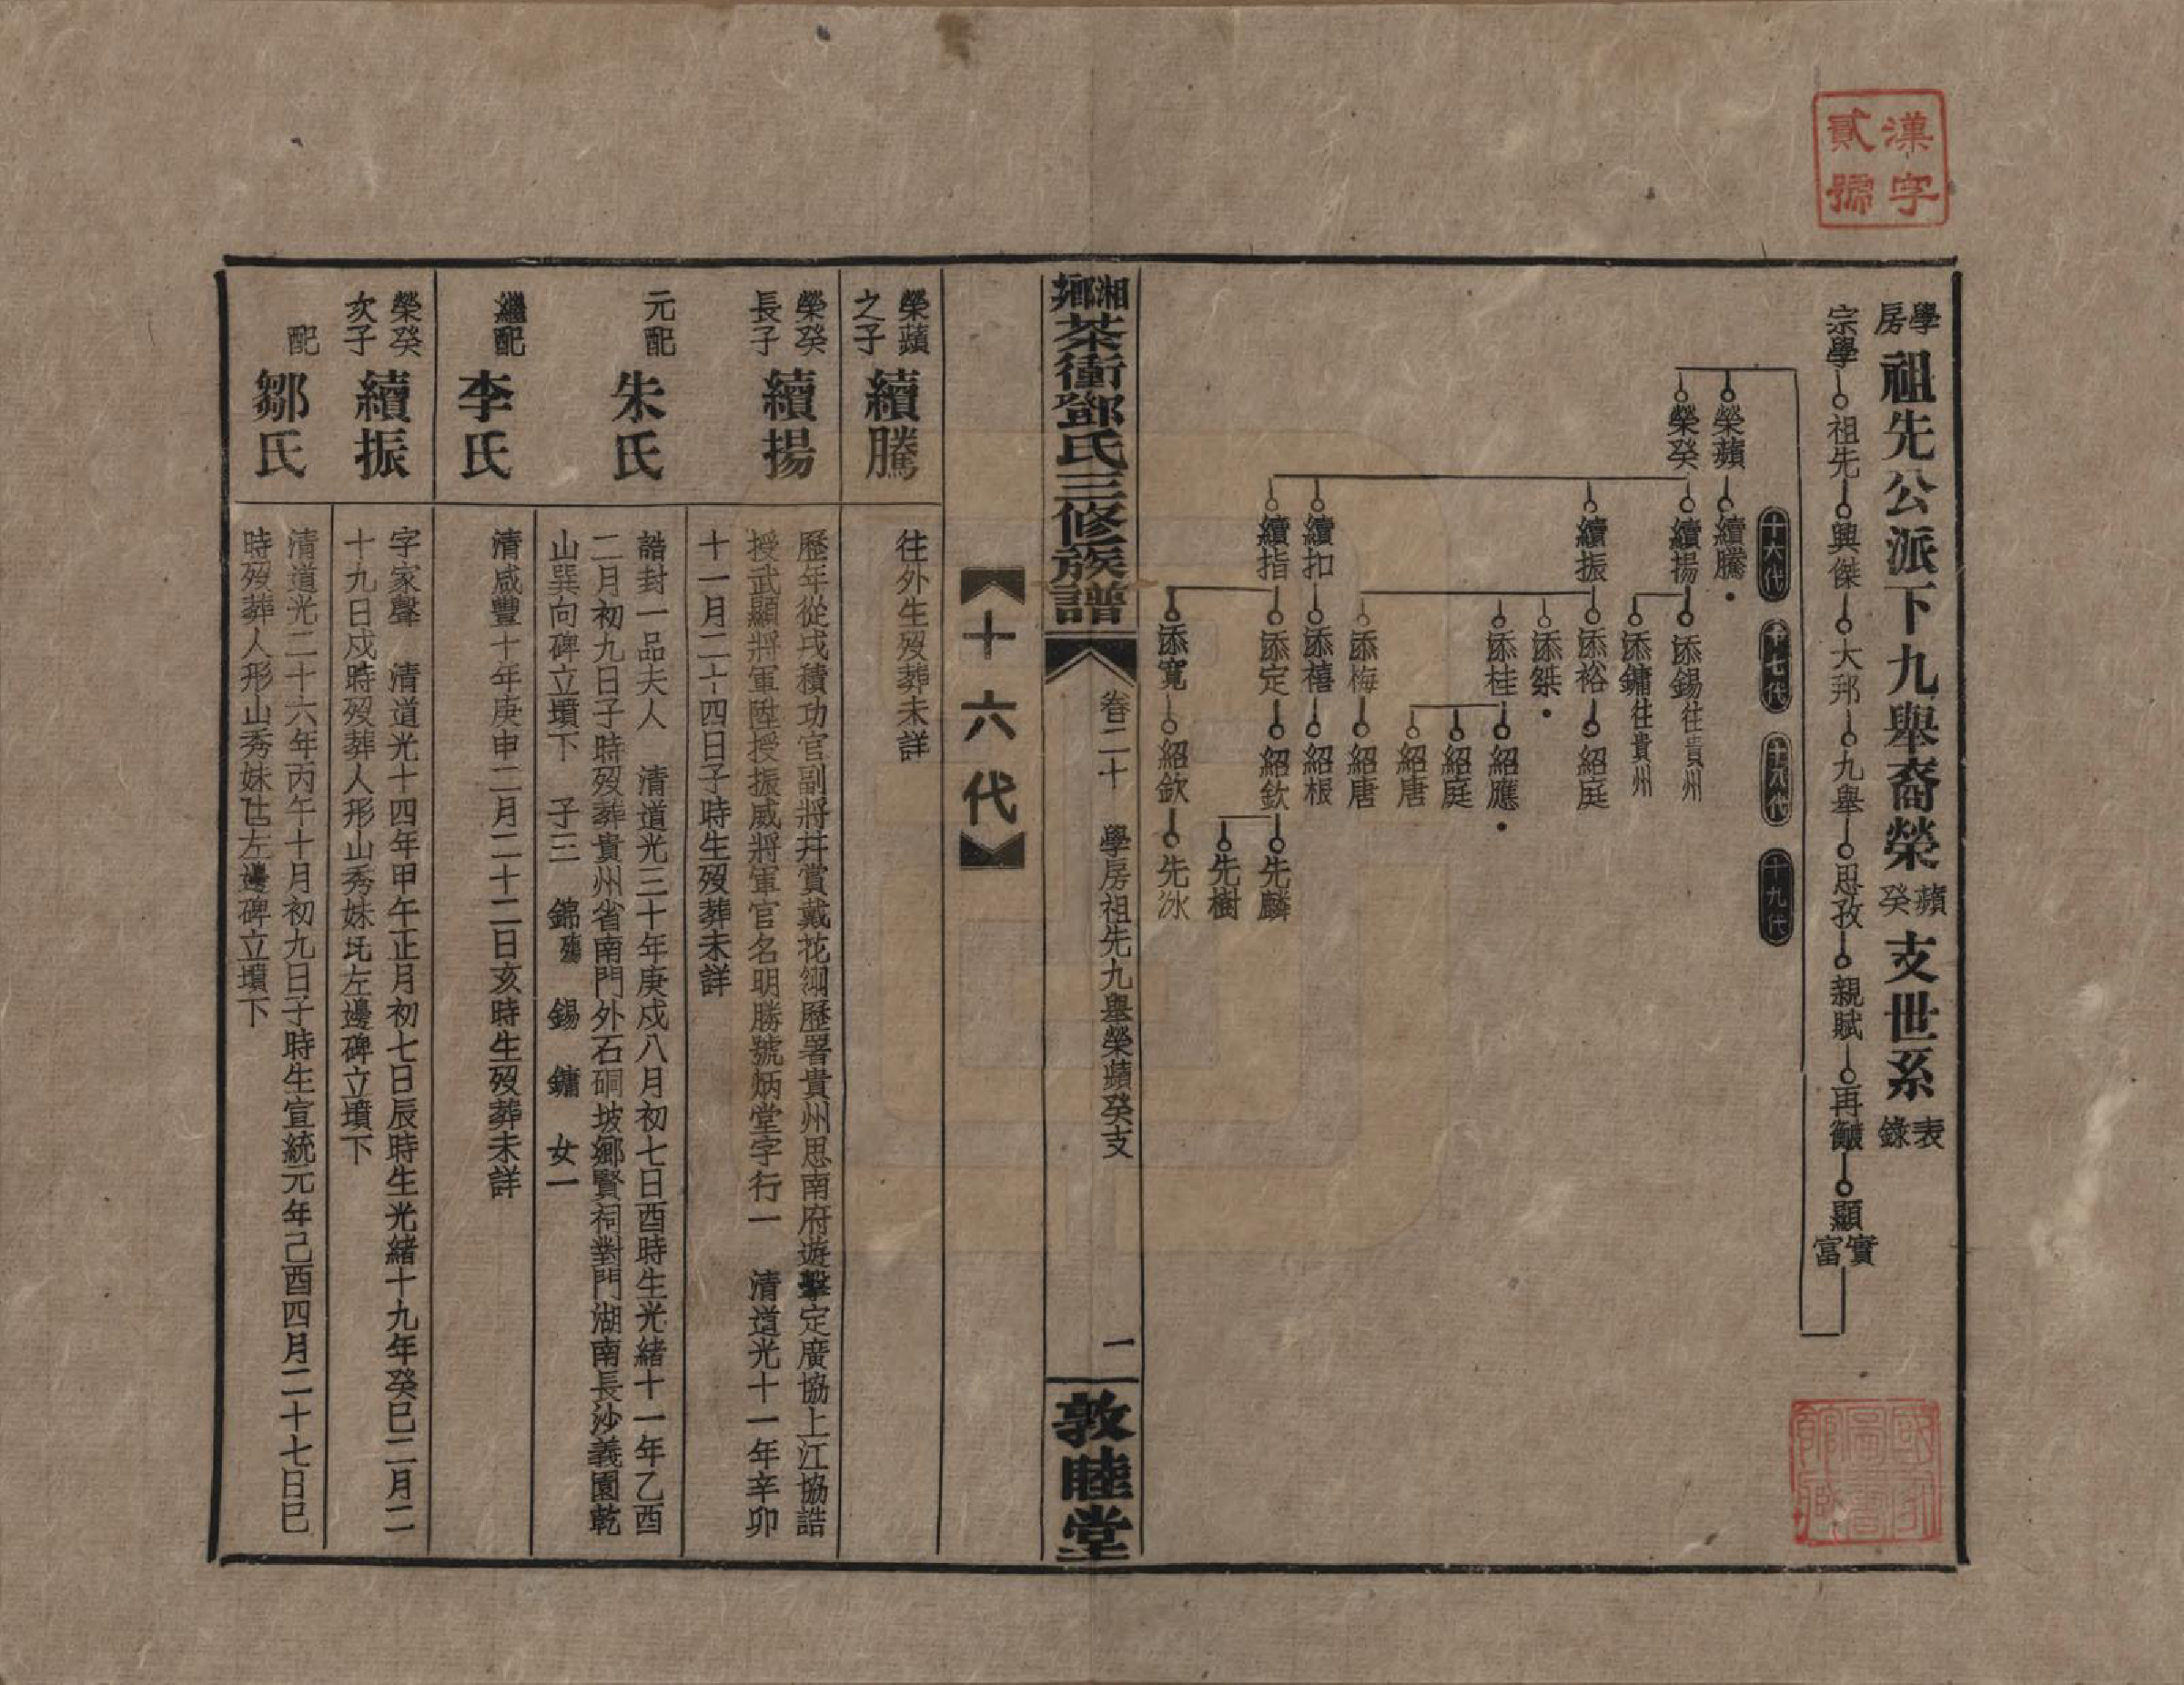 漢字
貳號
學房祖先公派下九舉裔榮蘋癸支世系表錄
宗學 祖先 興傑 大邦 九舉 思孜 親賦 再 顯實富
十六代 十七代 十八代 十九代
榮蘋 續騰
榮癸 續揚 添錫往貴州
添鏞往貴州
續振 添裕 紹庭
添桀
添桂 紹應
紹庭
紹唐
添梅 紹唐
續扣 添禧 紹根
續指 添定 紹欽 先麟
先樹
添寬 紹欽 先冰
湘鄉茶衝鄧氏三修族譜
卷二十 學房祖先九舉榮蘋癸支 一
敦睦堂
十六代
榮蘋之子 續騰
往外生歿葬未詳
榮癸長子 續揚
歷年從戎積功官副將幷賞戴花翎歷署貴州思南府遊擊定廣協上江協誥
授武顯將軍陞授振威將軍官名明勝號炳堂字行一 清道光十一年辛卯
十一月二十四日子時生歿葬未詳
元配 朱氏
誥封一品夫人 清道光三十年庚戌八月初七日酉時生光緒十一年乙酉
二月初九日子時歿葬貴州省南門外石硐坡鄉賢祠對門湖南長沙義園乾
山巽向碑立墳下 子三 錦殤 錫 鏞 女一
繼配 李氏
清咸豐十年庚申二月二十二日亥時生歿葬未詳
榮癸次子 續振
字家聲 清道光十四年甲午正月初七日辰時生光緒十九年癸巳二月二
十九日戌時歿葬人形山秀妹氹左邊碑立墳下
配 鄒氏
清道光二十六年丙午十月初九日子時生宣統元年己酉四月二十七日巳
時歿葬人形山秀妹氹左邊碑立墳下